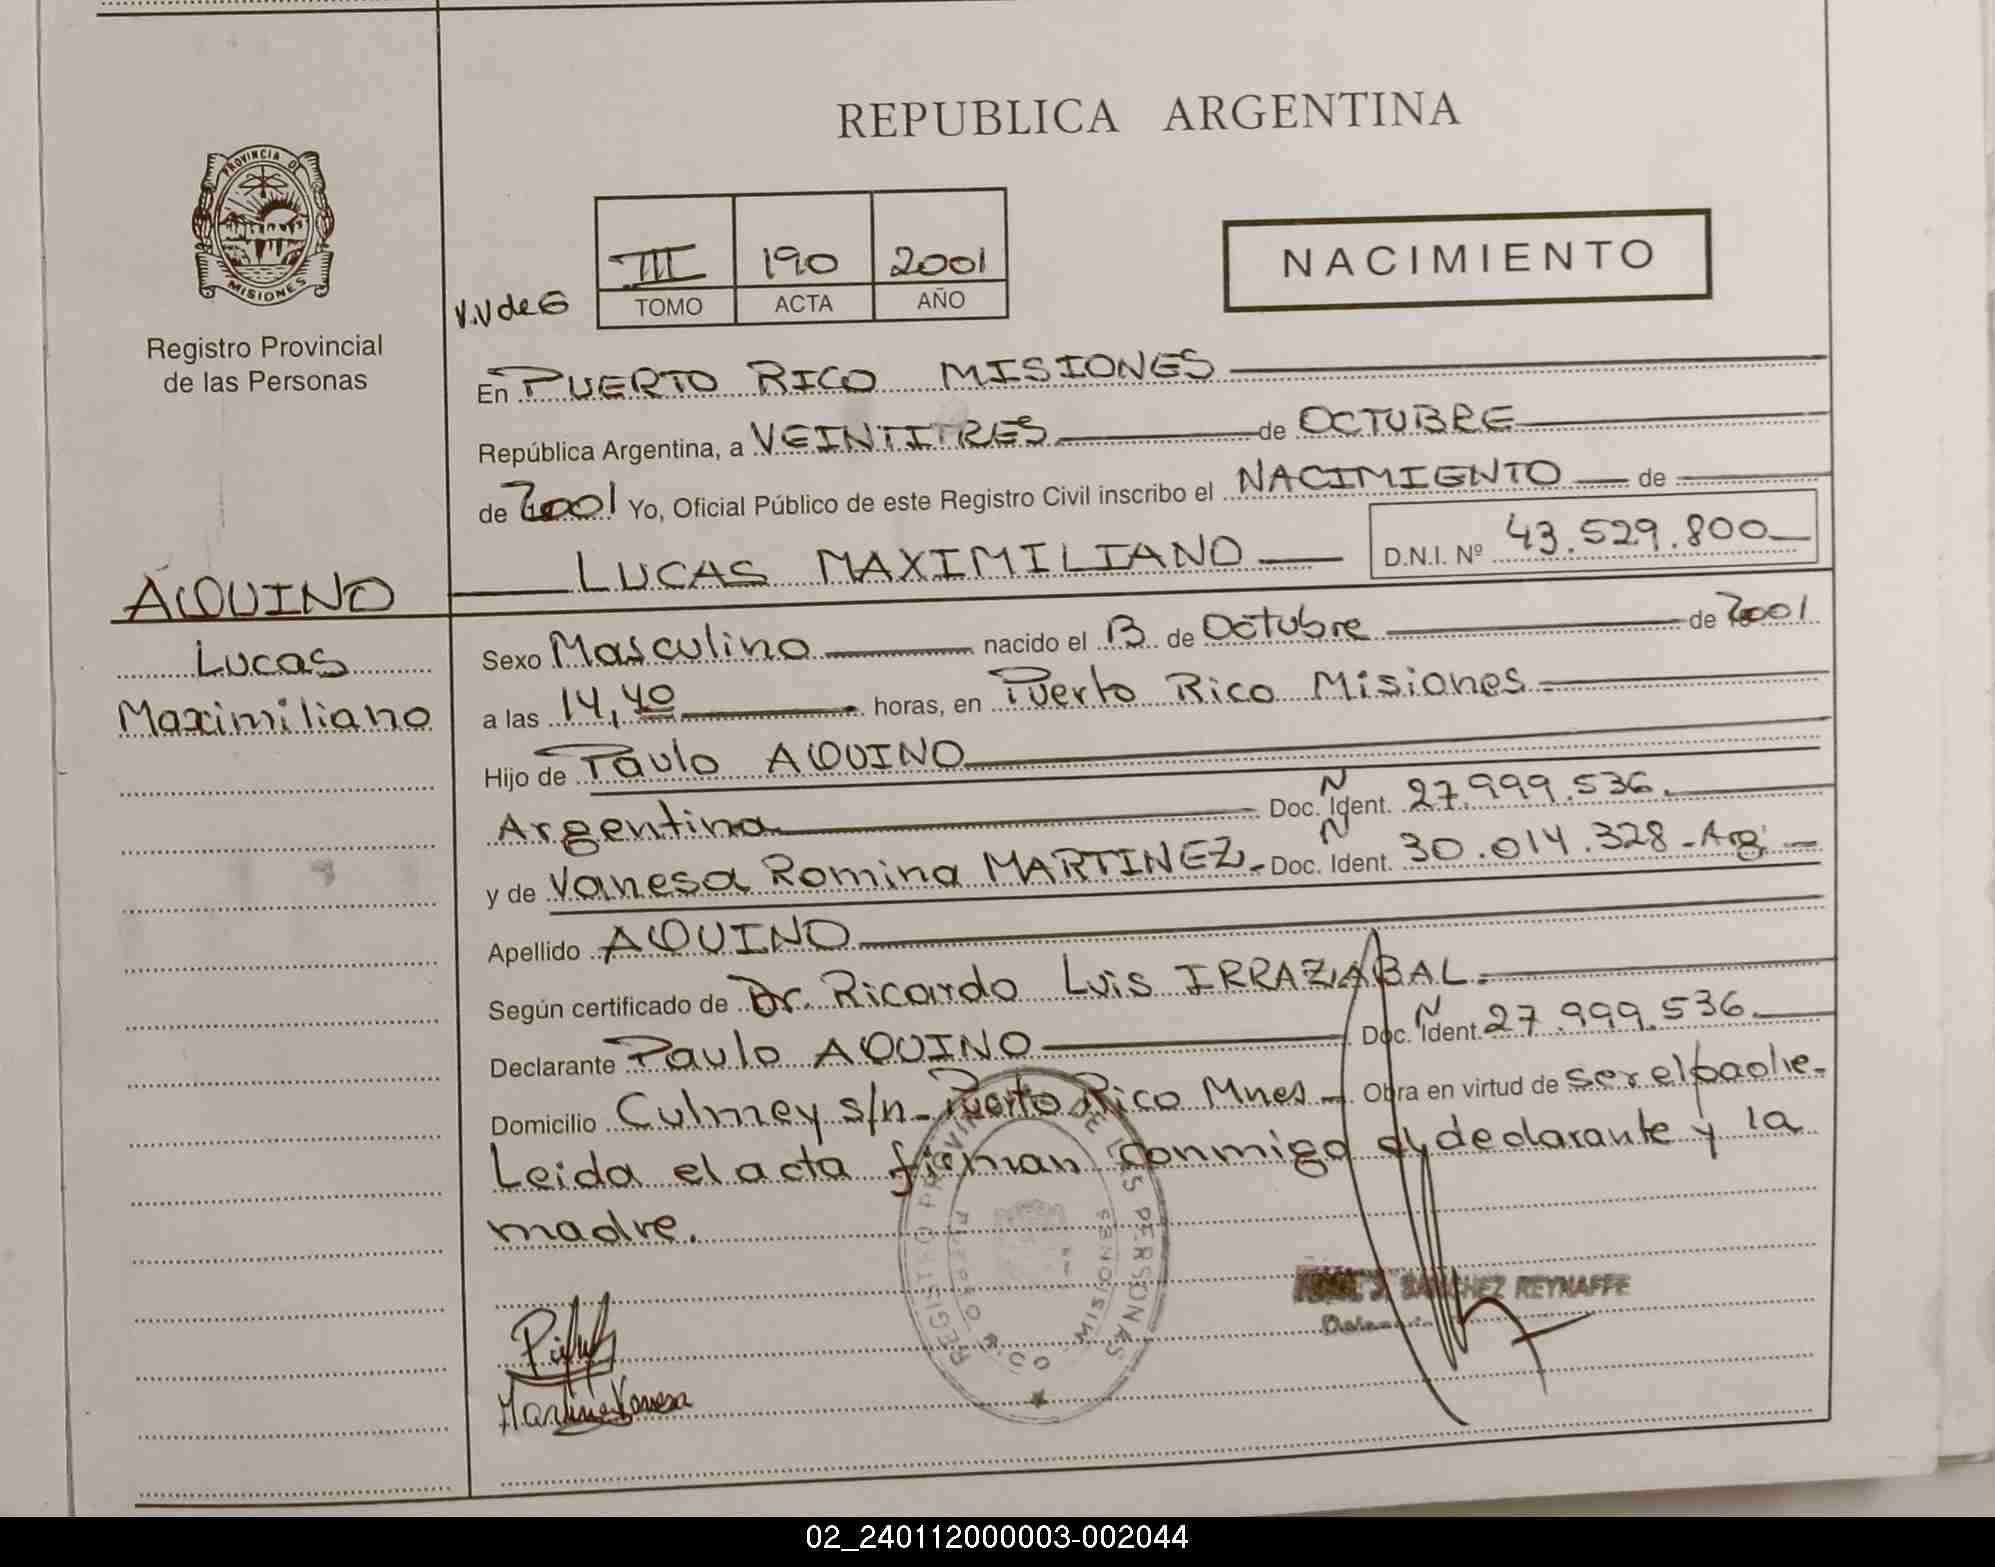 REPUBLICA ARGENTINA
PROVINCIA DE
MISIONES
Registro Provincial
de las Personas
III 190 2001
TOMO ACTA AÑO
NACIMIENTO
V.V de G
En PUERTO RICO MISIONES
República Argentina, a VEINTITRES de OCTUBRE
de 2001 Yo, Oficial Público de este Registro Civil inscribo el NACIMIENTO de
LUCAS MAXIMILIANO D.N.I. Nº 43.529.800
AQUINO
Lucas
Maximiliano
Sexo Masculino nacido el 13 de Octubre de 2001
a las 14,40 horas, en Puerto Rico Misiones
Hijo de Paulo AQUINO
Argentina Doc. Ident. N 27.999.536
y de Vanesa Romina MARTINEZ - Doc. Ident. N 30.014.328 - Arg
Apellido AQUINO
Según certificado de Dr. Ricardo Luis IRRAZABAL
Declarante Paulo AQUINO Doc. Ident. N 27.999.536
Domicilio Culmey s/n - Puerto Rico Mnes - Obra en virtud de ser el padre -
Leida el acta firman conmigo el declarante y la
madre.
REGISTRO PROVINCIAL DE LAS PERSONAS
MISIONES
SANCHEZ REYNAFFE
Martinez Vanesa
02_240112000003-002044